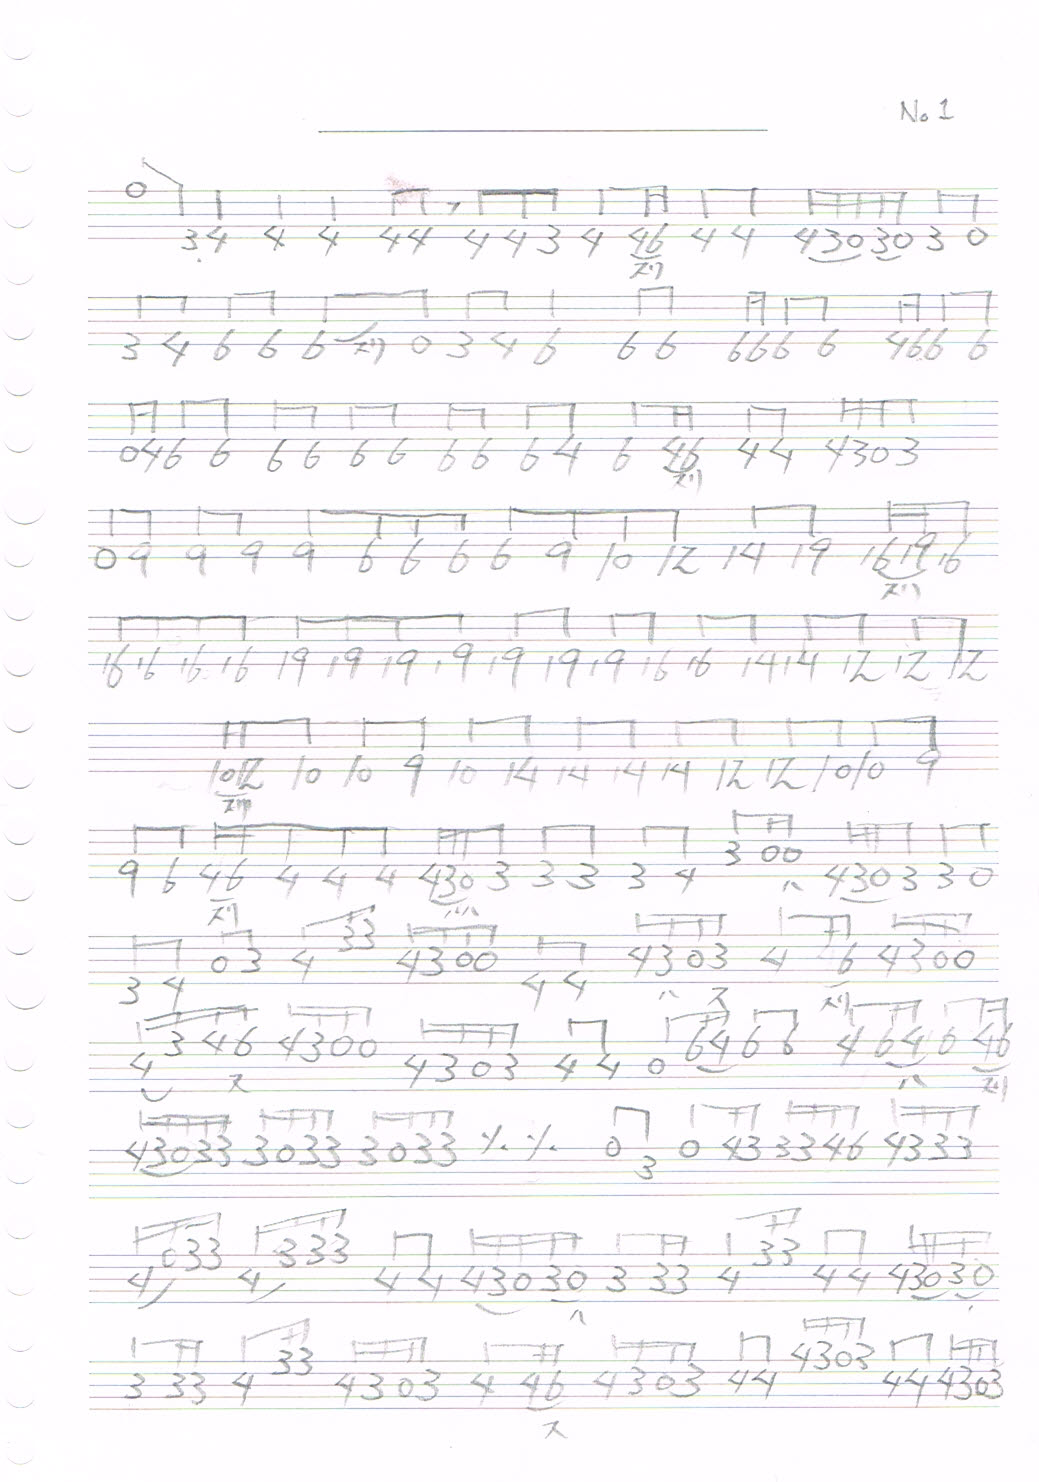 No 1
0 34 4 4 44 443 4 46 44 43030 3 0
スリ
3 4 6 6 6 スリ 0 3 4 6 6 6 666 6 466 6
046 6 66 66 66 64 6 46 44 4303
スリ
0 9 9 9 9 6 6 6 6 9 10 12 14 19 16 19 16
スリ
16 16 16 16 19 19 19 19 19 19 19 16 16 14 14 12 12 12
10 12 10 10 9 10 14 14 14 14 12 12 10 10 9
スリ
9 6 46 4 4 4 430 3 3 3 3 4 3 00 430 3 3 0
スリ ハハ ハ
3 4 03 4 33 4300 44 4303 4 6 4300
ハ スリ
4 346 4300 4303 44 0 6466 464 0 46
ス ス ハ スリ
43033 3033 3033 ٪ ٪ 0 3 0 43 3346 4333
4 033 4 333 44 43030 3 33 4 33 44 43030
ハ
3 33 4 33 4303 4 46 4303 44 4303 44 4303
ス